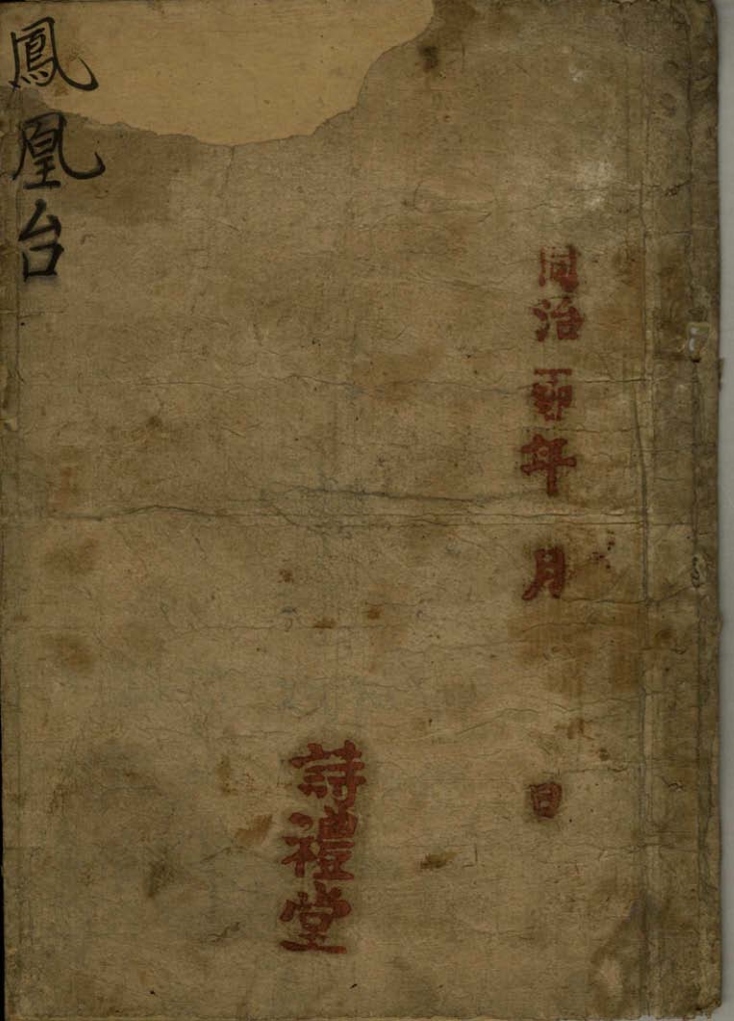 同治年 月 日
詩禮堂
鳳凰台